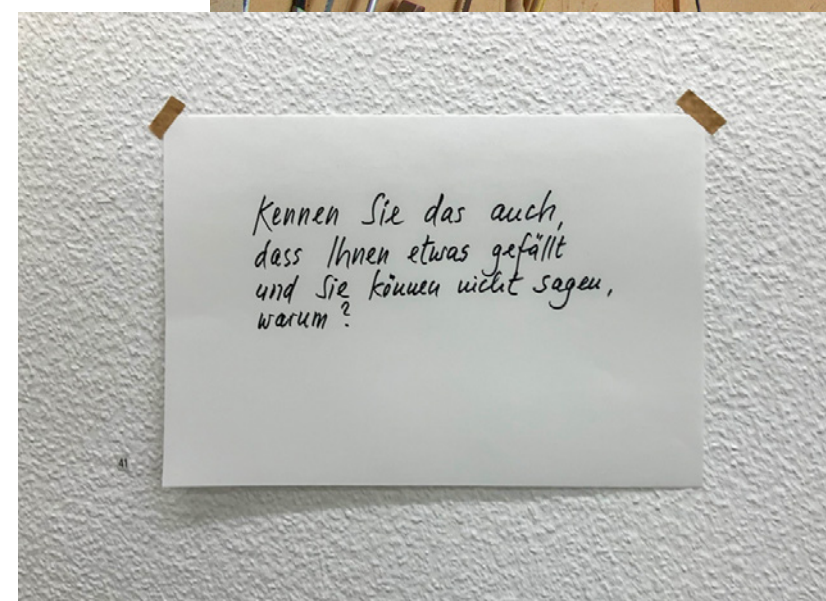 Kennen Sie das auch,
dass Ihnen etwas gefällt
und Sie können nicht sagen,
warum?
41